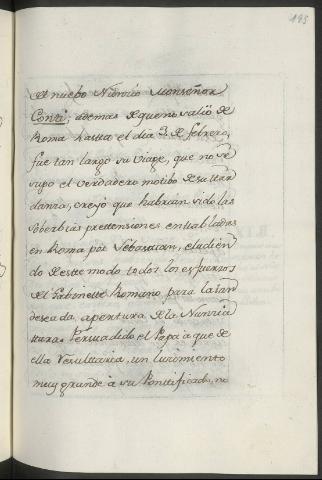 195
el nuebo Núncio Monseñor
Conti, ademas de que no salió de
Roma hasta el dia 3 de febrero,
fue tan largo su viage, que no se
supo el verdadero motibo de su tar
danza, creyó que habrian sido las
soberbias prettensiones entabladas
en Roma por Sebastian, eludien
do de este modo todos los esfuerzos
del Gabinette Romano para la tan
deseada, apertura de la Nunzia
ttura. Persuadido el Papa à que de
ella resulttaria, un lucimiento
muy grande à su Pontificado, no